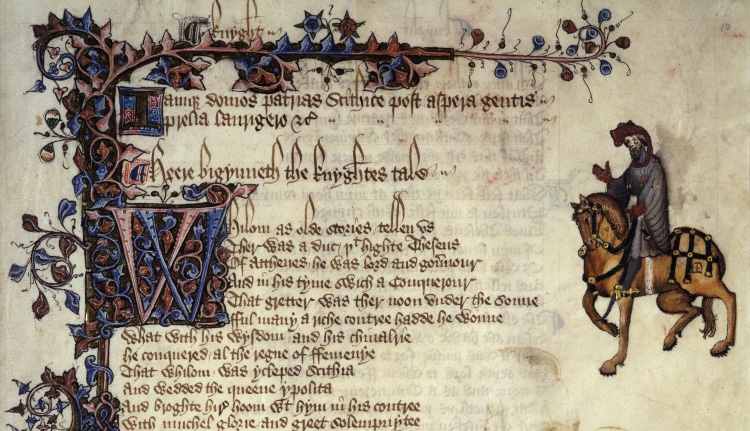 ¶ Knyght
10
Iamq; domos patrias Scithice post aspera gentis
prelia laurigero &c
¶ Heere bigynneth the knyghtes tale
Whilom as olde stories tellen vs
Ther was a duc þt highte Theseus
Of Atthenes he was lord and gouernour
And in his tyme swich a Conquerour
That gretter was ther noon vnder the sonne
fful many a riche contree hadde he wonne
What with his wysdom and his chiualrie
he conquered al the regne of ffemenye
That whilom was ycleped Scithia
And wedded the queene ypolita
And broghte hir hoom wt hym in his contree
With muchel glorie and greet solempnytee